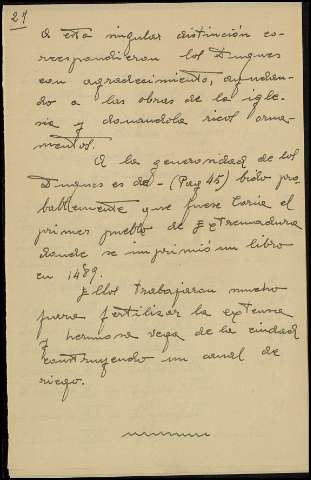 21
A esta singular distinción co-
rrespondieron los Duques
con agradecimiento, ayudan-
do a las obras de la igle-
sia y donandola ricos orna-
mentos.
A la generosidad de los
Duques es de - (Pag 45) bido pro-
bablemente que fuese Coria el
primer pueblo de Extremadura
donde se imprimió un libro
en 1489.
Ellos trabajaron mucho
para fertilizar la extensa
y hermosa vega de la ciudad
construyendo un canal de
riego.